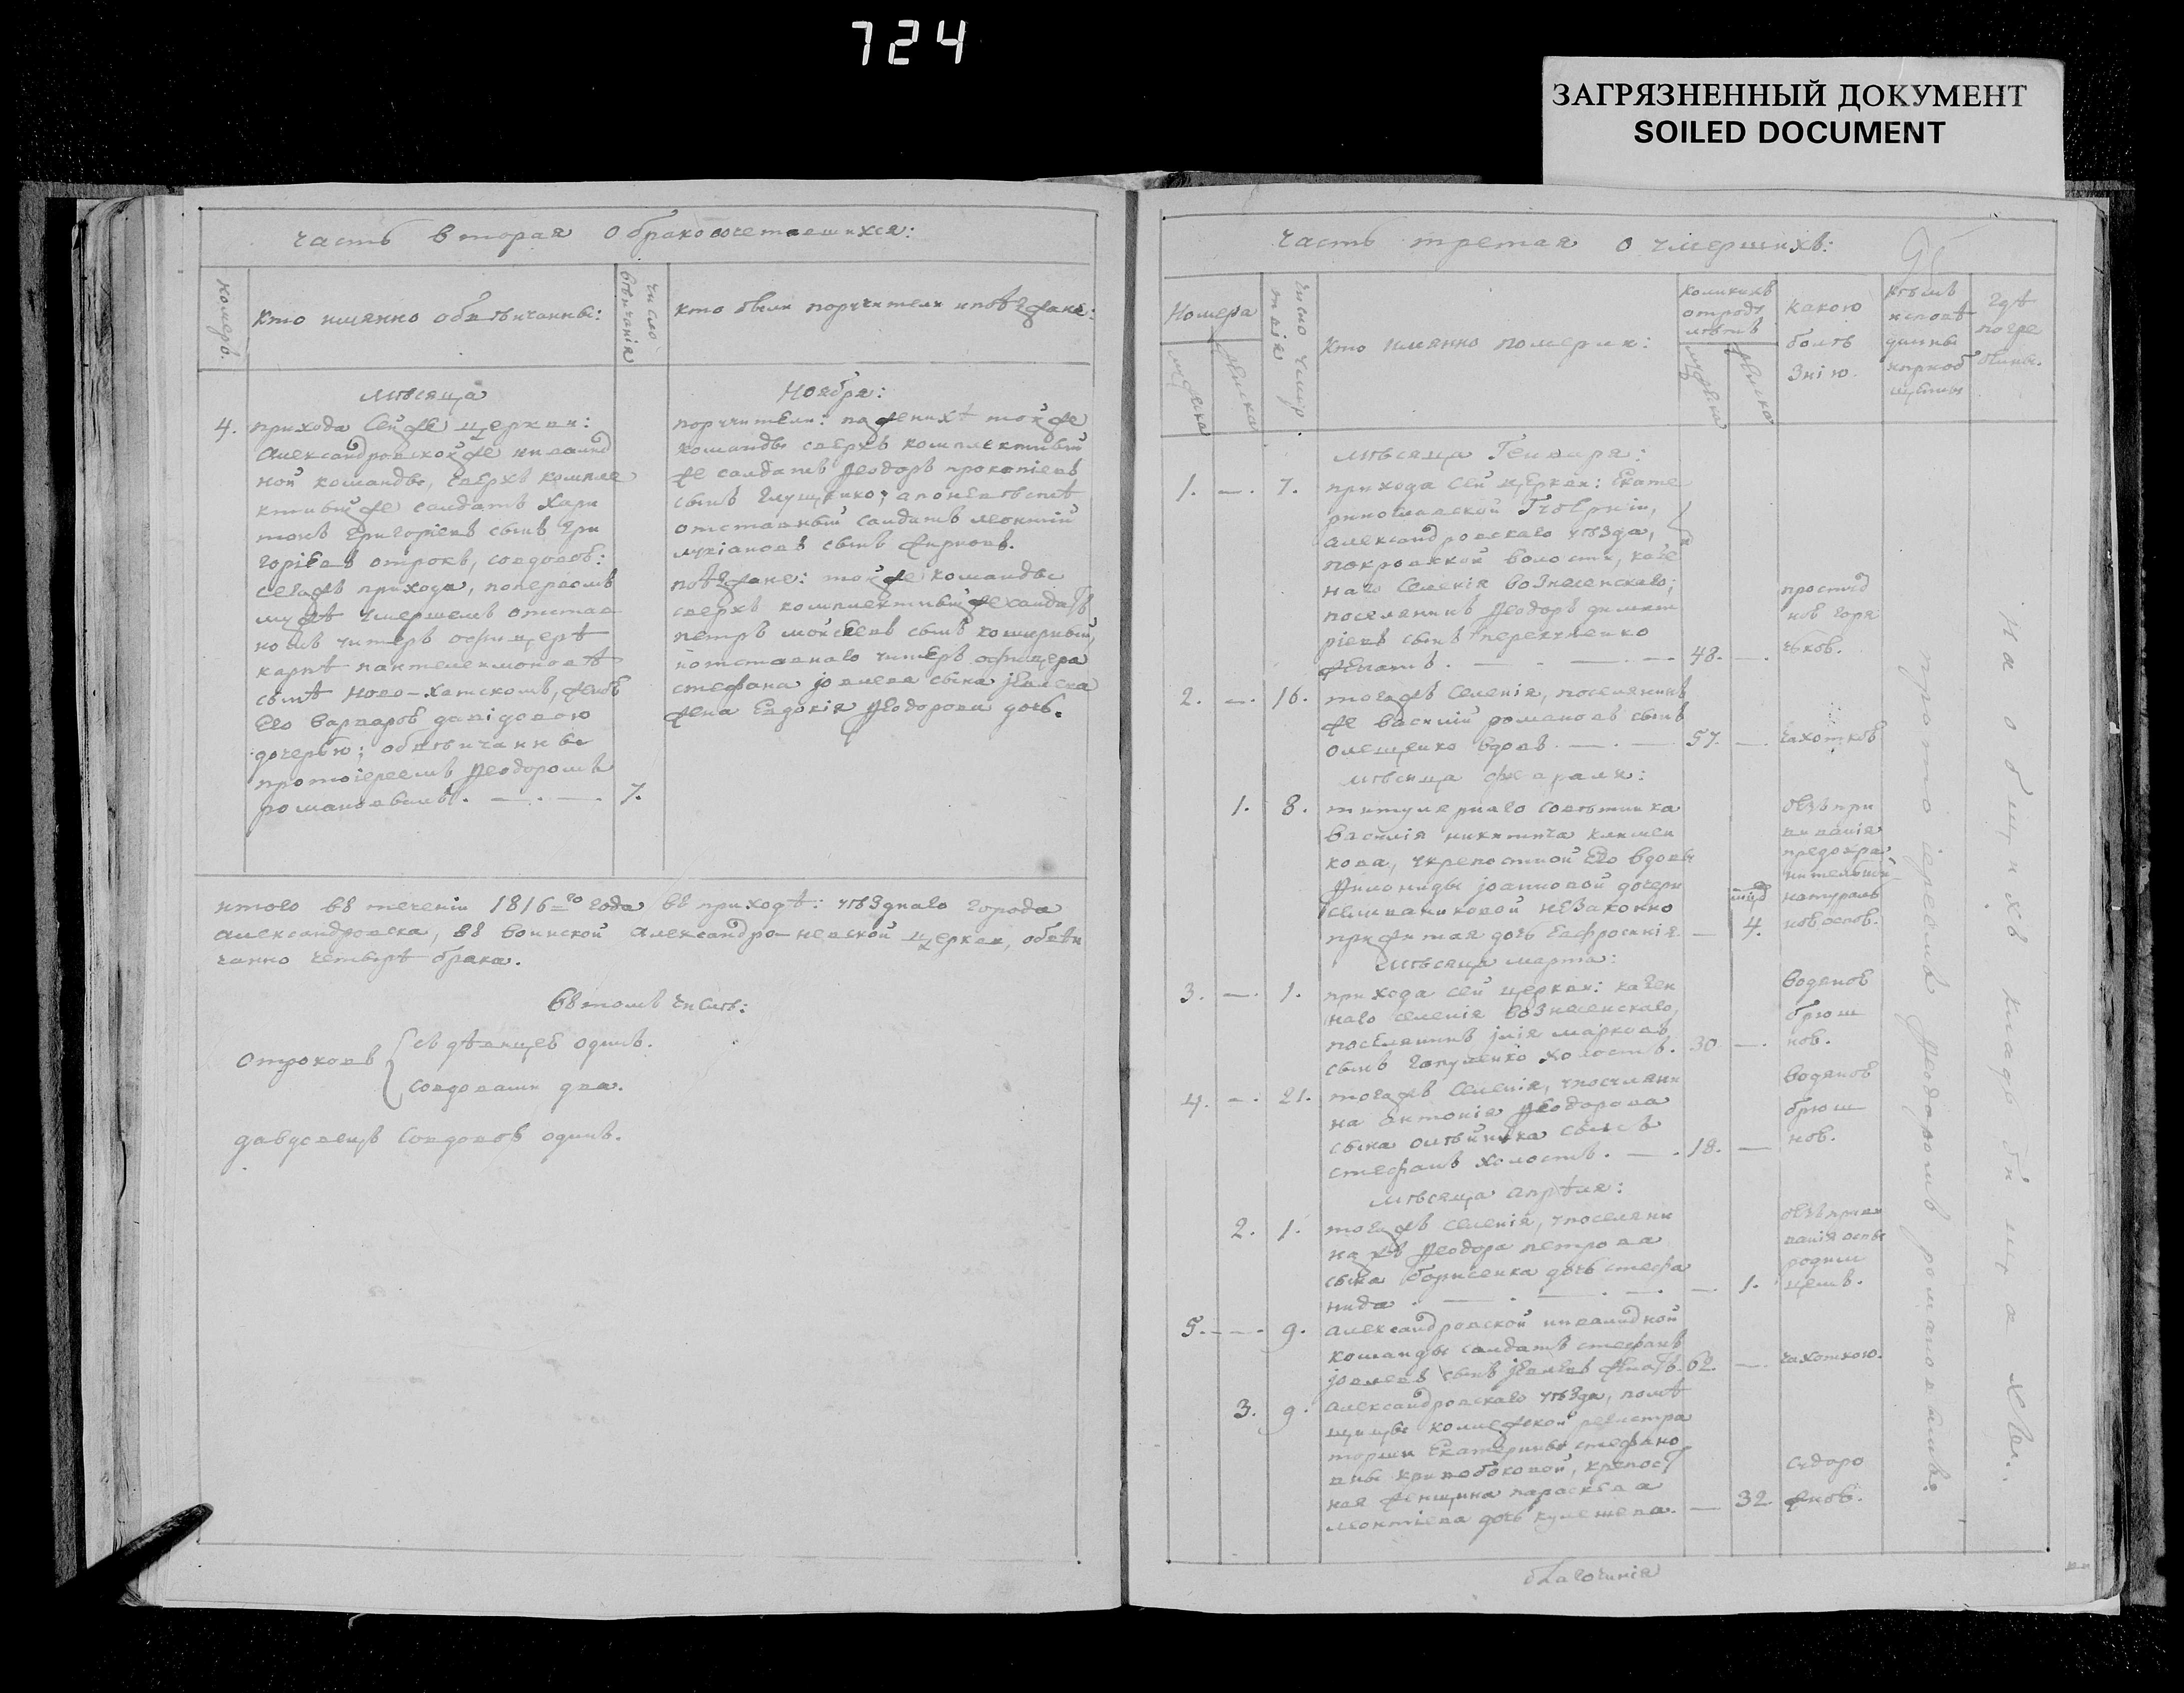 724
ЗАГРЯЗНЕННЫЙ ДОКУМЕНТ
SOILED DOCUMENT
часть вторая о бракосочетавшихся:
номеръ.
кто имянно обвѣнчанны:
число вѣнчанія
кто были поручители и поѣзжане:
мѣсяца
Ноября:
4.
прихода сей же церкви:
Александровской же инвалид
ной команды, сверхъ компле
ктный же салдатъ Хари
тонъ Григоріевъ сынъ Гри
горіевъ отрокъ, совдовою:
сегожъ прихода, поперьвомъ
мужѣ умершемъ отстав
номъ унтеръ офицерѣ
карпѣ пантелеимоновѣ
сынѣ Ново-хатскомъ, женою
Его варварою давідовою
дочерью; обвѣнчанны
протоіереемъ Ѳеодоромъ
романовымъ.
7.
поручители: поженихѣ той же
команды сверхъ комплектный
же салдатъ Ѳеодоръ прокопіевъ
сынъ Глущенко; а поневѣстѣ
отставный салдатъ леонтій
лукіановъ сынъ Фирновъ.
поѣзжане: той же команды
сверхъ комплектный же салдатъ
петръ мойсеевъ сынъ
и отставнаго унтеръ офицера
стефана іовлева сына іевлева
жена Евдокія Ѳеодорова дочь.
итого въ теченіи 1816=го года въ приходѣ: уѣзднаго города
александровска, въ воинской Александро-невской церкви, обвѣн
чанно четыре брака.
въ томъ числѣ:
отроковъ
съ дѣвицею одинъ.
совдовами два.
давдовецъ совдовою одинъ.
часть третая о умершихъ:
Номера
мужеска
женска
число умертвія
кто имянно померли:
коликихъ
отроду
лѣтъ
мужеска
женска
какою
болѣ
знію.
кѣмъ
исповѣ
данны
ипріоб
щенны
гдѣ
погре
бенны.
мѣсяца Генваря:
1. —. 7.
прихода сей церкви: Екате
ринославской Губерніи,
александровскаго уѣзда,
покровской волости, казе
наго селенія вознесенскаго;
поселянинъ Ѳеодоръ димит
ріевъ сынъ
женатъ. — 48. —
простуд
ною горя
чкою.
2. —. 16.
тогожъ селенія, поселянинъ
же василій романовъ сынъ
олещенко вдовъ. — 57. —
чахоткою
мѣсяца февраля:
1. 8.
титулярнаго совѣтника
василія никитича климен
кова, укрепостной Его вдовы
Филониды іоанновой дочери
селивановой незаконно
прижитая дочь Евфросинія — 4.
безъ при
виванія
предохра
нительной
натураль
ною оспою.
мѣсяца марта:
3. —. 1.
прихода сей церкви: казен
наго селенія вознесенскаго,
поселянинъ ілія марковъ
сынъ холостъ. 30 —.
водяною
брюш
ною.
4. —. 21.
тогожъ селенія, упоселяни
на антонія Ѳеодорова
сына олѣйника сынъ
стефанъ холостъ. — 18. —
водяною
брюш
ною.
мѣсяца апрѣля:
2. 1.
тогожъ селенія, упоселяни
на жъ Ѳеодора петрова
сына борисенка дочь стефа
нида. — 1.
безъ приви
ванія оспы
родим
цемъ.
5. —. 9.
александровской инвалидной
команды салдатъ стефанъ
іовлевъ сынъ іевлевъ женатъ. 62. —
чахоткою.
3. 9.
александровскаго уѣзда, помѣ
щицы коллежской регистра
торши Екатерины стефано
вны кривобоковой, крепост
ная женщина параскева
леонтіева дочь кулешева. — 32
судоро
жною.
протоіереемъ Ѳеодоромъ романовымъ.
На общихъ кладбищахъ.
благочинія